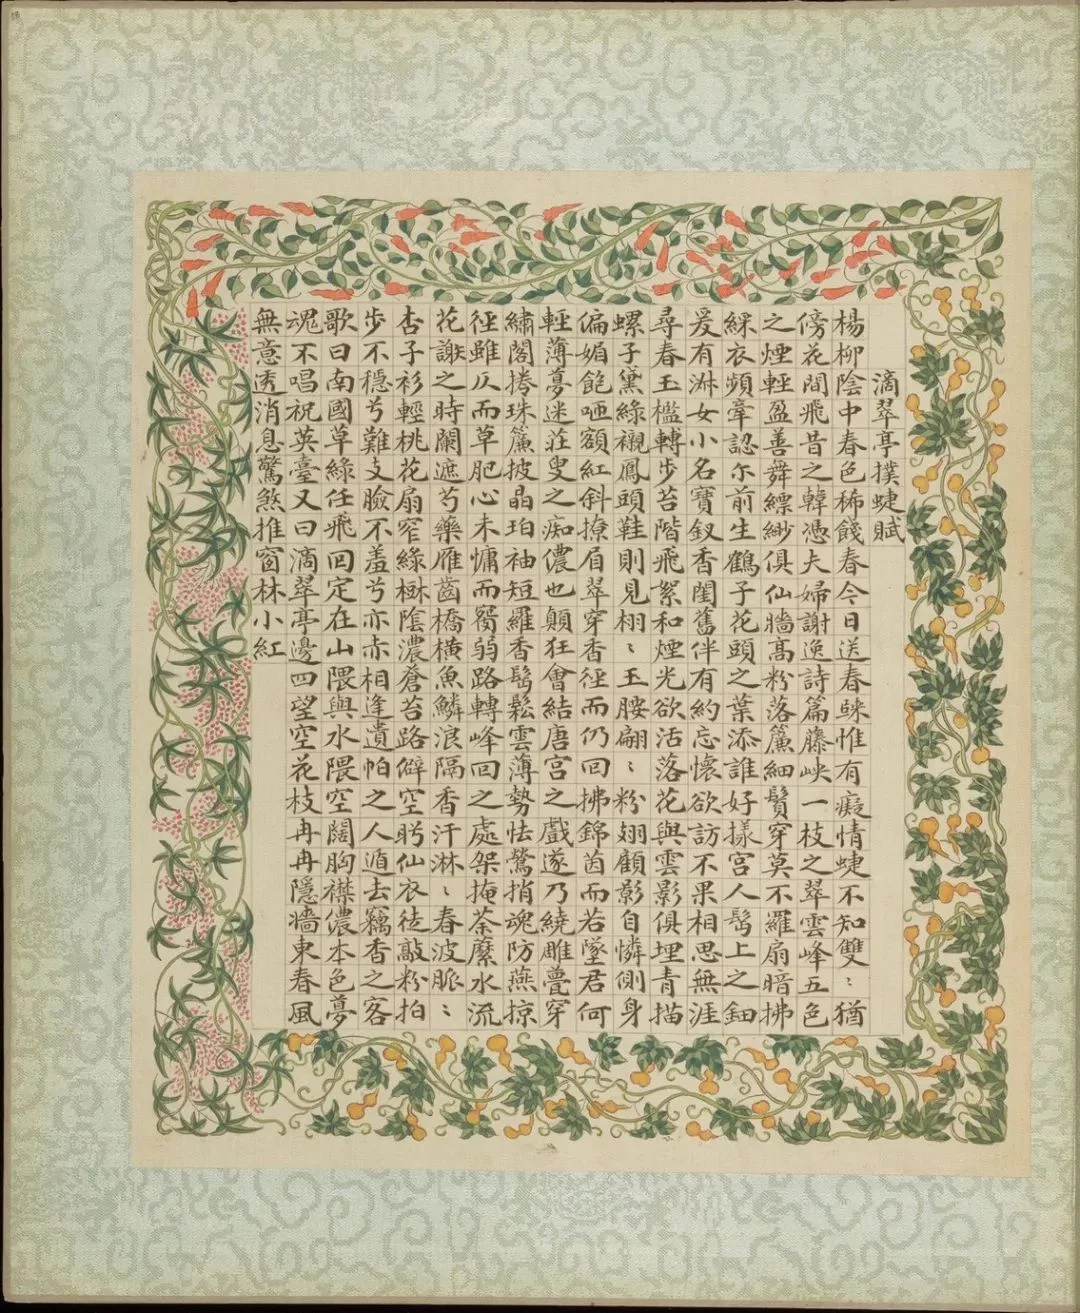 滴翠亭撲蜨賦
楊柳陰中春色稀餞春今日送春歸惟有癡情蜨不知雙〻猶
傍花間飛昔之韓憑夫婦謝逸詩篇藤峽一枝之翠雲峰五色
之煙輕盈善舞縹緲俱仙牆高粉落簾細鬚穿莫不羅扇暗拂
綵衣頻牽認尔前生鶴子花頭之葉添誰好樣宮人髩上之鈿
爰有淋女小名寶釵香閨舊伴有約忘懷欲訪不果相思無涯
尋春玉檻轉步苔階飛絮和煙光欲活落花與雲影俱埋青描
螺子黛綠襯鳳頭鞋則見栩〻玉胺翩〻粉翅顧影自憐側身
偏媚飽咂額紅斜撩眉翠穿香徑而仍回拂錦茵而若墜君何
輕薄夢迷莊叟之痴儂也顛狂會結唐宮之戲遂乃繞雕甍穿
繡閣捲珠簾披晶珀袖短羅香髩鬆雲薄勢怯驚捎魂防燕掠
徑雖仄而草肥心未慵而鬢弱路轉峰回之處架掩荼縻水流
花謝之時闌遮芍藥雁齒橋橫魚鱗浪隔香汗淋〻春波脈〻
杏子衫輕桃花扇窄綠樹陰濃蒼苔路僻空眄仙衣徒敲粉拍
步不穩兮難支臉不羞兮亦赤相逢遺帕之人遁去竊香之客
歌曰南國草綠任飛回定在山隈與水隈空闊胸襟儂本色夢
魂不唱祝英臺又曰滴翠亭邊四望空花枝冉冉隱牆東春風
無意透消息驚煞推窗林小紅